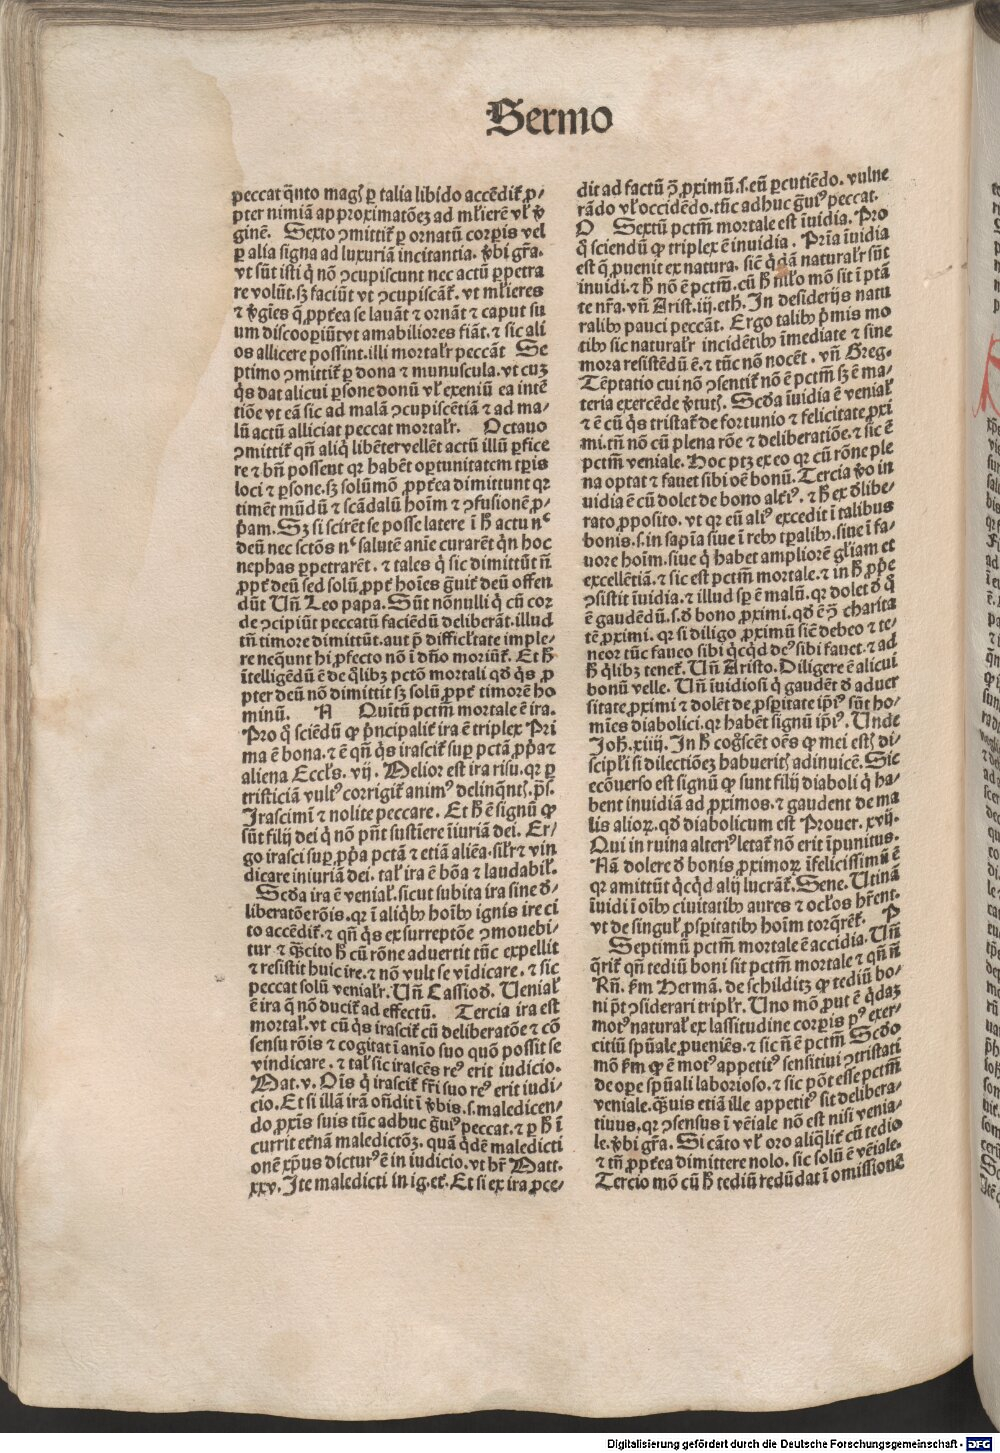 Sermo
peccat q̃nto magꝭ ꝑ talia libido accẽdit᷑ ꝓ-
pter nimiã approximatõeꝫ ad mĺierẽ vĺ ꝟ̓
ginẽ. Sexto ↄmittit᷑ ꝑ ornatũ corꝑis vel
ꝑ alia signa ad luxuriã incitantia. ꝟbi gr̃a.
vt sũt isti q̓ nõ ↄcupiscunt nec actũ ꝑpetra
re volũt. sꝫ faciũt vt ↄcupiscãt᷑. vt mĺieres
⁊ ꝟgĩes q̃ ꝓpt̃ea se lauãt ⁊ ornãt ⁊ caput su
um discooꝑiũt vt amabiliores fiãt. ⁊ sic ali
os allicere possint. illi mortalr̃ peccãt Se
ptimo ↄmittit᷑ ꝑ dona ⁊ munuscula. vt cuꝫ
q̓s dat alicui ꝑsone donũ vĺ exeniũ ea intẽ
tiõe vt eã sic ad malã ↄcupiscẽtiã ⁊ ad ma-
lũ actũ alliciat peccat mortalr̃. Octauo
ↄmittit᷑ qñ aliq̓ libẽter vellẽt actũ illũ ꝑfice
re ⁊ bñ possent qꝛ habẽt oꝑtunitatem tꝑis
loci ⁊ ꝑsone. sꝫ solũmõ ꝓpt̃ea dimittunt qꝛ
timẽt mũdũ ⁊ scãdalũ hoĩm ⁊ ↄfusionẽ ꝓ-
p̓am. Sꝫ si scirẽt se posse latere ĩ ħ actu nᶜ
deũ nec sctõs nᶜ salutẽ anĩe curarẽt q̓n hoc
nephas ꝑpetrarẽt. ⁊ tales q̓ sic dimittũt ñ
ꝓpt̃ deũ sed solũ ꝓpt̃ hoĩes g̃uit᷑ deũ offen
dũt Uñ Leo papa. Sũt nõnulli q̓ cũ cor
de ↄcipiũt peccatũ faciẽdũ deliberãt. illud
tñ timore dimittũt. aut p̃ difficĺtate imple-
re neq̃unt hi ꝓfecto nõ ĩ dño moriũt᷑. Et ħ
ĩtelligẽdũ ẽ de q̓libꝫ pctõ mortali qđ q̓s ꝓ
pter deũ nõ dimittit sꝫ solũ ꝓpt̃ timorẽ ho
minũ. N Quĩtũ pctm̃ mortale ẽ ira.
Pro q̓ sciẽdũ ꝙ p̓ncipalit᷑ ira ẽ triplex Pri
ma ẽ bona. ⁊ ẽ qñ q̓s irascit᷑ suꝑ pctã ꝓp̓a ⁊
aliena Eccĺs. vij. Melior est ira risu. qꝛ ꝑ
tristiciã vultꝰ corrigit᷑ animꝰ delinq̃ntꝭ. p̃s.
Irascimĩ ⁊ nolite peccare. Et ħ ẽ signũ ꝙ
sũt filij dei q̓ nõ pñt sustĩere ĩiuriã dei. Er-
go irasci suꝑ ꝓp̓a pctã ⁊ etiã aliẽa. silr̃ ⁊ vin
dicare iniuriã dei. taĺ ira ẽ bõa ⁊ laudabiĺ.
Scđa ira ẽ veniaĺ. sicut subita ira sine đ-
liberatõe rõis. qꝛ ĩ aliq̓bꝰ hoĩbꝰ ignis ire ci
to accẽdit᷑. ⁊ qñ q̓s ex surreptõe ↄmouebi-
tur ⁊ q̃ꝫcito ħ cũ rõne aduertit tũc expellit
⁊ resistit huic ire. ⁊ nõ vult se vĩdicare. ⁊ sic
peccat solũ venialr̃. Uñ Cassiođ. Ueniaĺ
ẽ ira q̃ nõ ducit᷑ ad effectũ. Tercia ira est
mortaĺ. vt cũ q̓s irascit᷑ cũ deliberatõe ⁊ cõ
sensu rõis ⁊ cogitat ĩ anĩo suo quõ possit se
vindicare. ⁊ taĺ sic irascẽs reꝰ erit iudicio.
Mat. v. Oĩs q̓ irascit᷑ fr̃i suo reꝰ erit iudi-
cio. Et si illã irã oñdit ĩ ꝟbis. s. maledicen-
do ꝓxĩs suis tũc adhuc g̃uiꝰ peccat. ⁊ ꝑ ħ ĩ
currit et̃nã maledictõꝫ. quã q̓dẽ maledicti
onẽ xp̃us dicturꝰ ẽ in iudicio. vt hr̃ Matt.
xxv. Ite maledicti in ig. et̃. Et si ex ira ꝓce-
dit ad factũ ↄ̃ ꝓximũ. s. eũ ꝑcutiẽdo. vulne
rãdo vĺ occidẽdo. tũc adhuc g̃uiꝰ peccat.
O Sextũ pctm̃ mortale est ĩuidia. Pro
q̓ sciendũ ꝙ triplex ẽ inuidia. Pr̃ia ĩuidia
est q̃ ꝓuenit ex natura. sic̃ q̓dã naturalr̃ sũt
inuidi. ⁊ ħ nõ ẽ pctm̃. cũ ħ nĺlo mõ sit ĩ ptã
te nr̃a. vñ Arist. iij. etħ. In desiderijs natu
ralibꝰ pauci peccãt. Ergo talibꝰ p̓mis mo
tibꝰ sic naturalr̃ incidẽtibꝰ ĩmediate ⁊ sine
mora resistẽdũ ẽ. ⁊ tũc nõ nocẽt. vñ Greg.
Tẽptatio cui nõ ↄsentit᷑ nõ ẽ pctm̃ sꝫ ẽ ma-
teria exercẽde ꝟtutꝭ. Scđa ĩuidia ẽ veniaĺ
⁊ ẽ cũ q̓s tristat᷑ de fortunio ⁊ felicitate ꝓxi
mi. tñ nõ cũ plena rõe ⁊ deliberatiõe. ⁊ sic ẽ
pctm̃ veniale. Hoc ptꝫ ex eo qꝛ cũ rõne ple
na optat ⁊ fauet sibi oẽ bonũ. Tercia ꝟo in
uidia ẽ cũ dolet de bono alt̃iꝰ. ⁊ ħ ex đlibe-
rato ꝓposito. vt qꝛ eũ aliꝰ excedit ĩ talibus
bonis. s. in sapĩa siue ĩ rebꝰ tꝑalibꝰ. siue ĩ fa-
uore hoĩm. siue q̓ habet ampliorẽ gĺiam et
excellẽtiã. ⁊ sic est pctm̃ mortale. ⁊ in ħ ꝓp̓e
ↄsistit ĩuidia. ⁊ illud sꝑ ẽ malũ. qꝛ dolet đ q̓
ẽ gaudẽdũ. s. đ bono ꝓximi. qđ ẽ ↄ̃ charita
tẽ ꝓximi. qꝛ si diligo ꝓximũ sic̃ debeo ⁊ te-
neor tũc faueo sibi q̓cq̓d deꝰ sibi fauet. ⁊ ad
ħ q̓libꝫ tenet᷑. Uñ Aristo. Diligere ẽ alicui
bonũ velle. Uñ ĩuidiosi q̓ gaudẽt đ aduer
sitate ꝓximi ⁊ dolẽt de ꝓsꝑitate ip̃iꝰ sũt ho-
mĩes diabolici. qꝛ habẽt signũ ip̃iꝰ. Unde
Joħ. xiij. In ħ cog̃scẽt oẽs ꝙ mei estꝭ di-
scipĺi si dilectiõeꝫ habueritꝭ adinuicẽ. Sic
ecõuerso est signũ ꝙ sunt filij diaboli q̓ ha-
bent inuidiã ad ꝓximos. ⁊ gaudent de ma
lis alioꝝ. qđ diabolicum est Prouer. xvij.
Qui in ruina alteriꝰ letat᷑ nõ erit ĩpunitus.
Nã dolere đ bonis ꝓximoꝝ ĩfelicissimũ ẽ
qꝛ amittũt q̓cq̓d alij lucrãt᷑. Sene. Utinã
ĩuidi ĩ oĩbꝰ ciuitatibꝰ aures ⁊ ocĺos hr̃ent.
vt de singuĺ ꝓsꝑitatibꝰ hoĩm torq̃rẽt᷑. P
Septimũ pctm̃ mortale ẽ accidia. Uñ
q̃rit᷑ qñ tediũ boni sit pctm̃ mortale ⁊ qñ ñ
Rñ. fm̃ Hermã. de schilditꝫ ꝙ tediũ bo-
ni p̃t ↄsiderari triplr̃. Uno mõ ꝓut ẽ q̓daꝫ
motꝰ naturaĺ ex lassitudine corꝑis pꝰ exer-
citiũ spũale ꝓueniẽs. ⁊ sic ñ ẽ pctm̃ Scđo
mõ fm̃ ꝙ ẽ motꝰ appetitꝰ sensitiui ↄtristati
de oꝑe spũali laborioso. ⁊ sic põt esse pctm̃
veniale. q̃ꝫuis etiã ille appetitꝰ sit delibera-
tiuus. qꝛ ↄsensus ĩ vẽiale nõ est nisi venia-
le. ꝟbi gr̃a. Si cãto vĺ oro aliq̓lit᷑ cũ tedio
⁊ tñ ꝓpt̃ea dimittere nolo. sic solũ ẽ vẽiale.
Tercio mõ cũ ħ tediũ redũdat ĩ omissionẽ
Digitalisierung gefördert durch die Deutsche Forschungsgemeinschaft - DFG